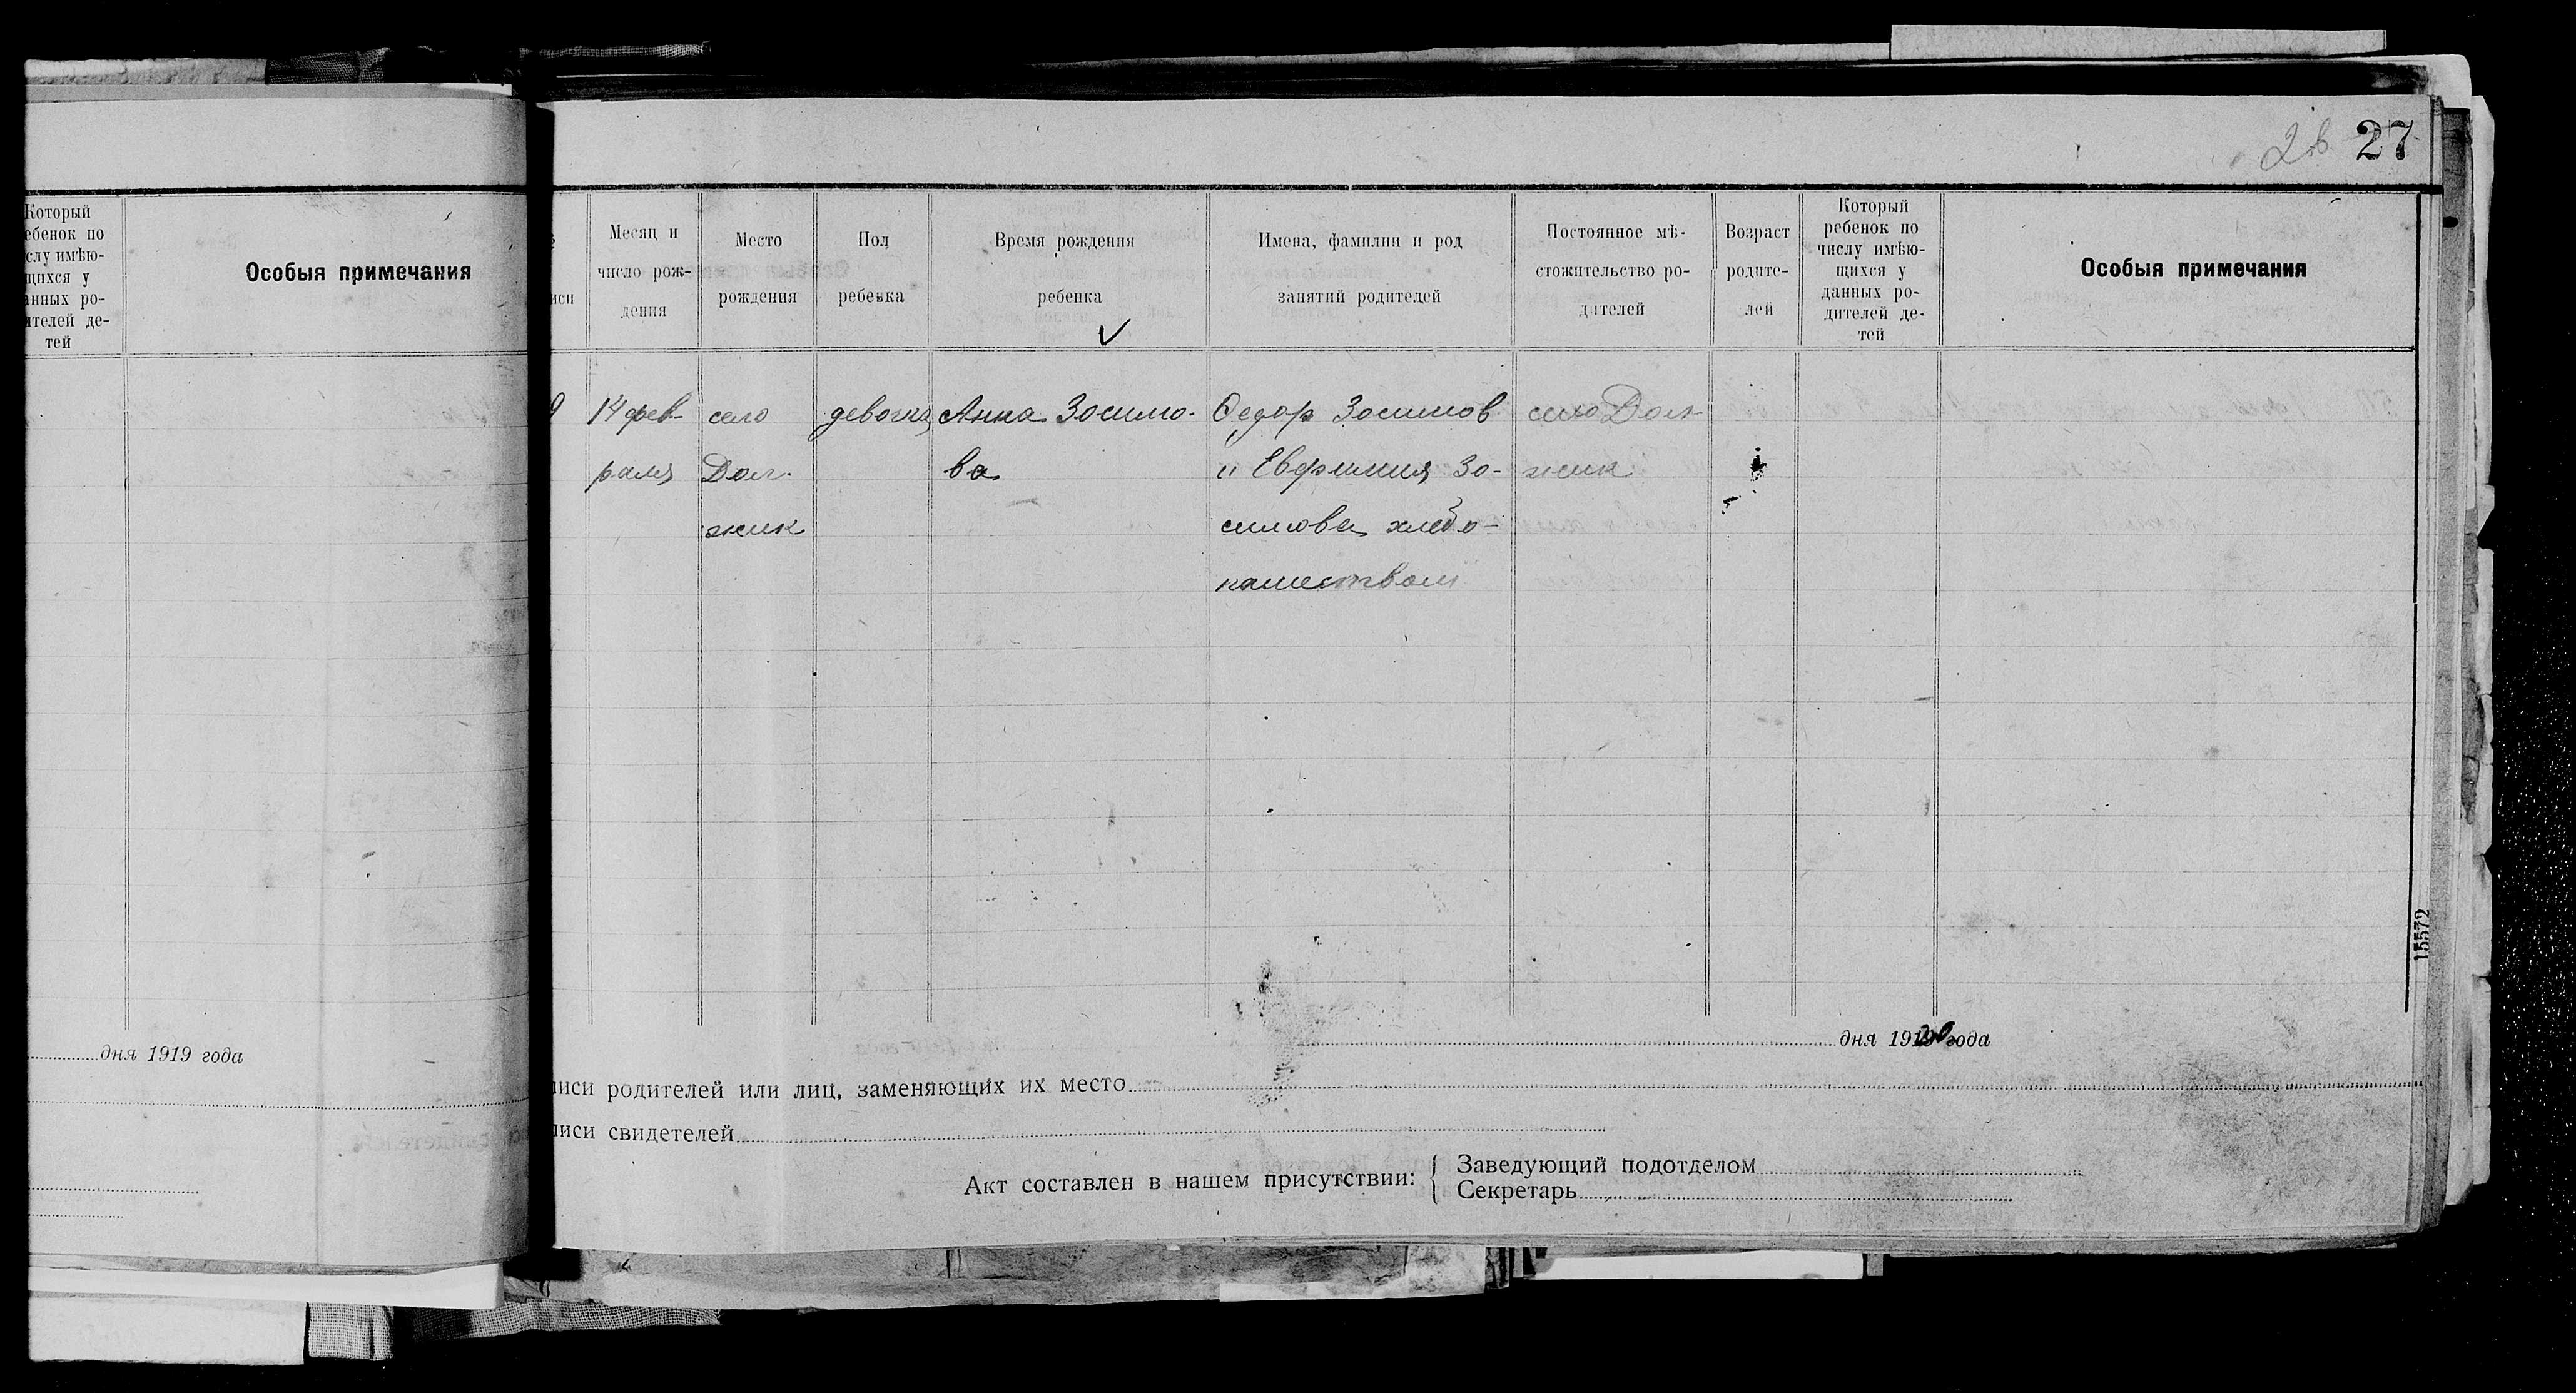 27
Который
ебенок по
слу имѣю-
щихся у
анных ро-
ителей де-
тей
Особыя примечания
иси
Месяц и
число рож-
дения
Место
рождения
Пол
ребенка
Время рождения
ребенка
Имена, фамилии и род
занятий родителей
Постоянное мѣ-
стожительство ро-
дителей
Возраст
родите-
лей
Который
ребенок по
числу имѣю-
щихся у
данных ро-
дителей де-
тей
Особыя примечания
14 фев-
раля
село
Дол-
жик
девочка
Анна Зосимо-
ва
Федор Зосимов
и Евфимия Зо-
симова хлебо-
пашеством
село Дол-
жик
15572
дня 1919 года
дня 1920 года
писи родителей или лиц, заменяющих их место
писи свидетелей
Акт составлен в нашем присутствии:
Заведующий подотделом
Секретарь